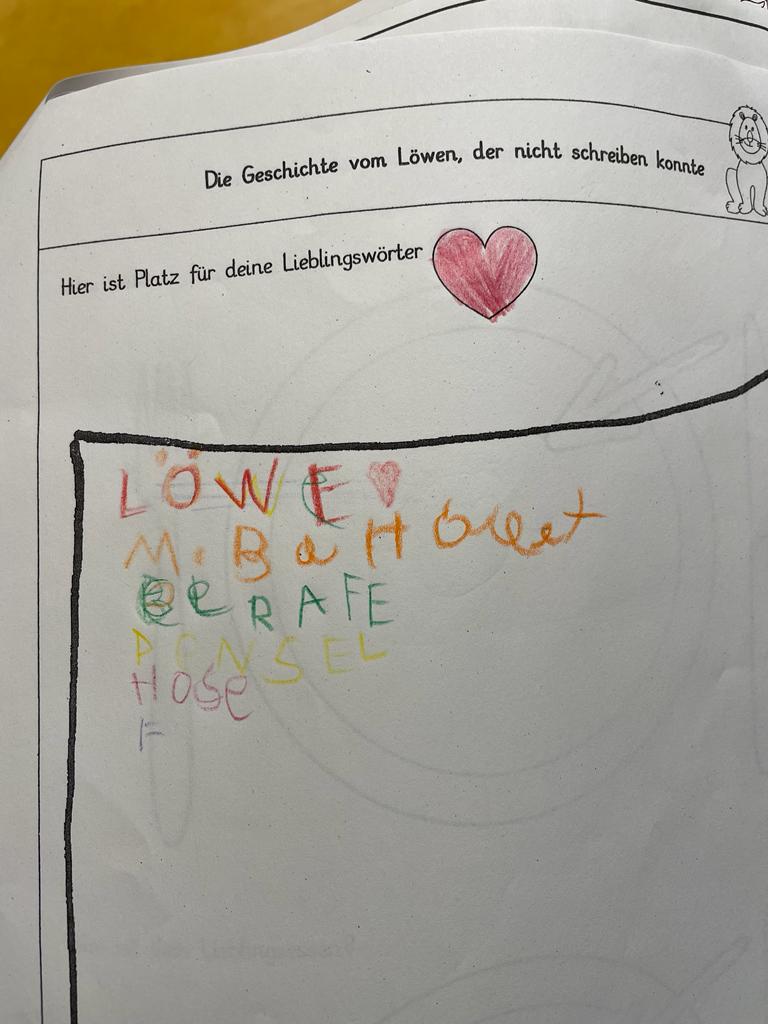 Die Geschichte vom Löwen, der nicht schreiben konnte
Hier ist Platz für deine Lieblingswörter
LÖWE
PENSEL
HOSe
F